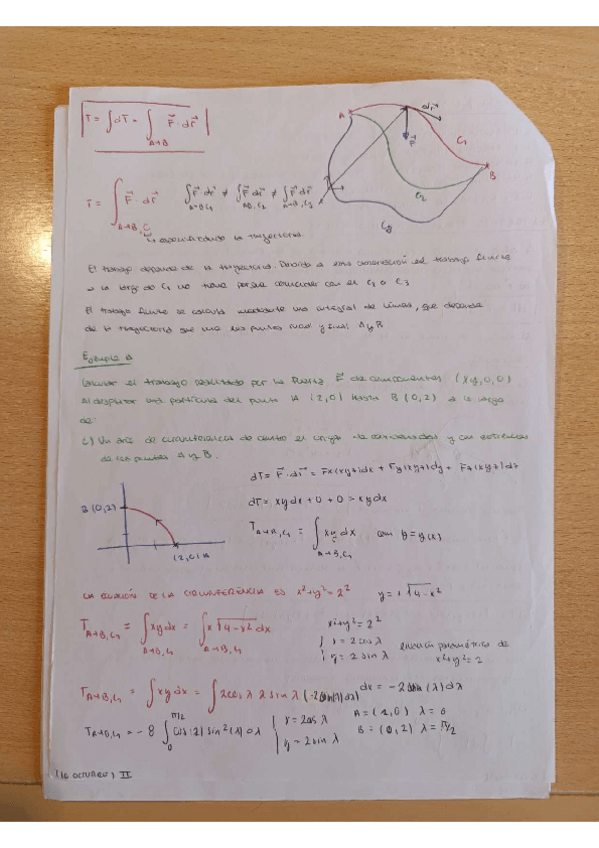 T = ∫dT = ∫_{A→B} F⃗·dr⃗
A
dr⃗
F⃗
C₁
B
C₂
C₃
T = ∫_{A→B, C} F⃗·dr⃗
∫_{A→B,C₁} F⃗·dr⃗ ≠ ∫_{AB,C₂} F⃗·dr⃗ ≠ ∫_{A→B,C₃} F⃗·dr⃗
especificando la trayectoria.
El trabajo depende de la trayectoria. Debido a esta el trabajo finito
a lo largo de C₁ no tiene porque coincidir con el C₂ o C₃
El trabajo finito se calcula mediante una integral de línea, que depende
de la trayectoria que una los puntos inicial y final A y B
Ejemplo
Calcular el trabajo realizado por la fuerza F⃗ de componentes (xy,0,0)
Al desplazar una partícula del punto A (2,0) hasta B (0,2) a lo largo
de:
c) Un arco de circunferencia de centro el origen de coordenadas y con extremos
de los puntos A y B.
dT = F⃗·dr⃗ = Fx(xyz)dx + Fy(xyz)dy + Fz(xyz)dz
B (0,2)
dT = xydx + 0 + 0 = xydx
T_{A→B,C₁} = ∫_{A→B,C₁} xydx con y=y(x)
(2,0) A
LA ECUACIÓN DE LA CIRCUNFERENCIA ES x²+y²=2² y=+√4-x²
T_{A→B,C₁} = ∫_{A→B,C₁} xydx = ∫_{A→B,C₁} x√4-x² dx
x²+y²=2²
{ x = 2cos λ
y = 2 sin λ
ecuación paramétrica de
x²+y²=2
T_{A→B,C₁} = ∫xydx = ∫2cos λ 2 sin λ (-2sin(λ)dλ) dx = -2sin(λ)dλ
A = (2,0) λ=0
T_{A→B,C₁} = -8 ∫₀^{π/2} cos(λ) sin²(λ)dλ { x = 2cos λ
y = 2sin λ
B = (0,2) λ=π/2
(16 OCTUBRE) II